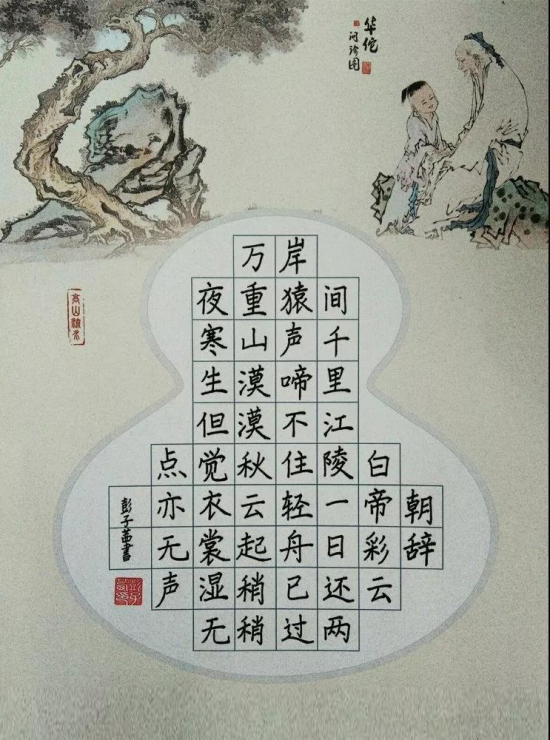 华佗
朝辞
白帝彩云
间千里江陵一日还两
岸猿声啼不住轻舟已过
万重山漠漠秋云起稍稍
夜寒生但觉衣裳湿无
点亦无声
彭子茜書
高山流水